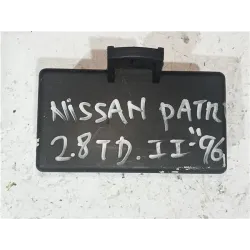 NiSSAN PATR
2.8 TD. II "96